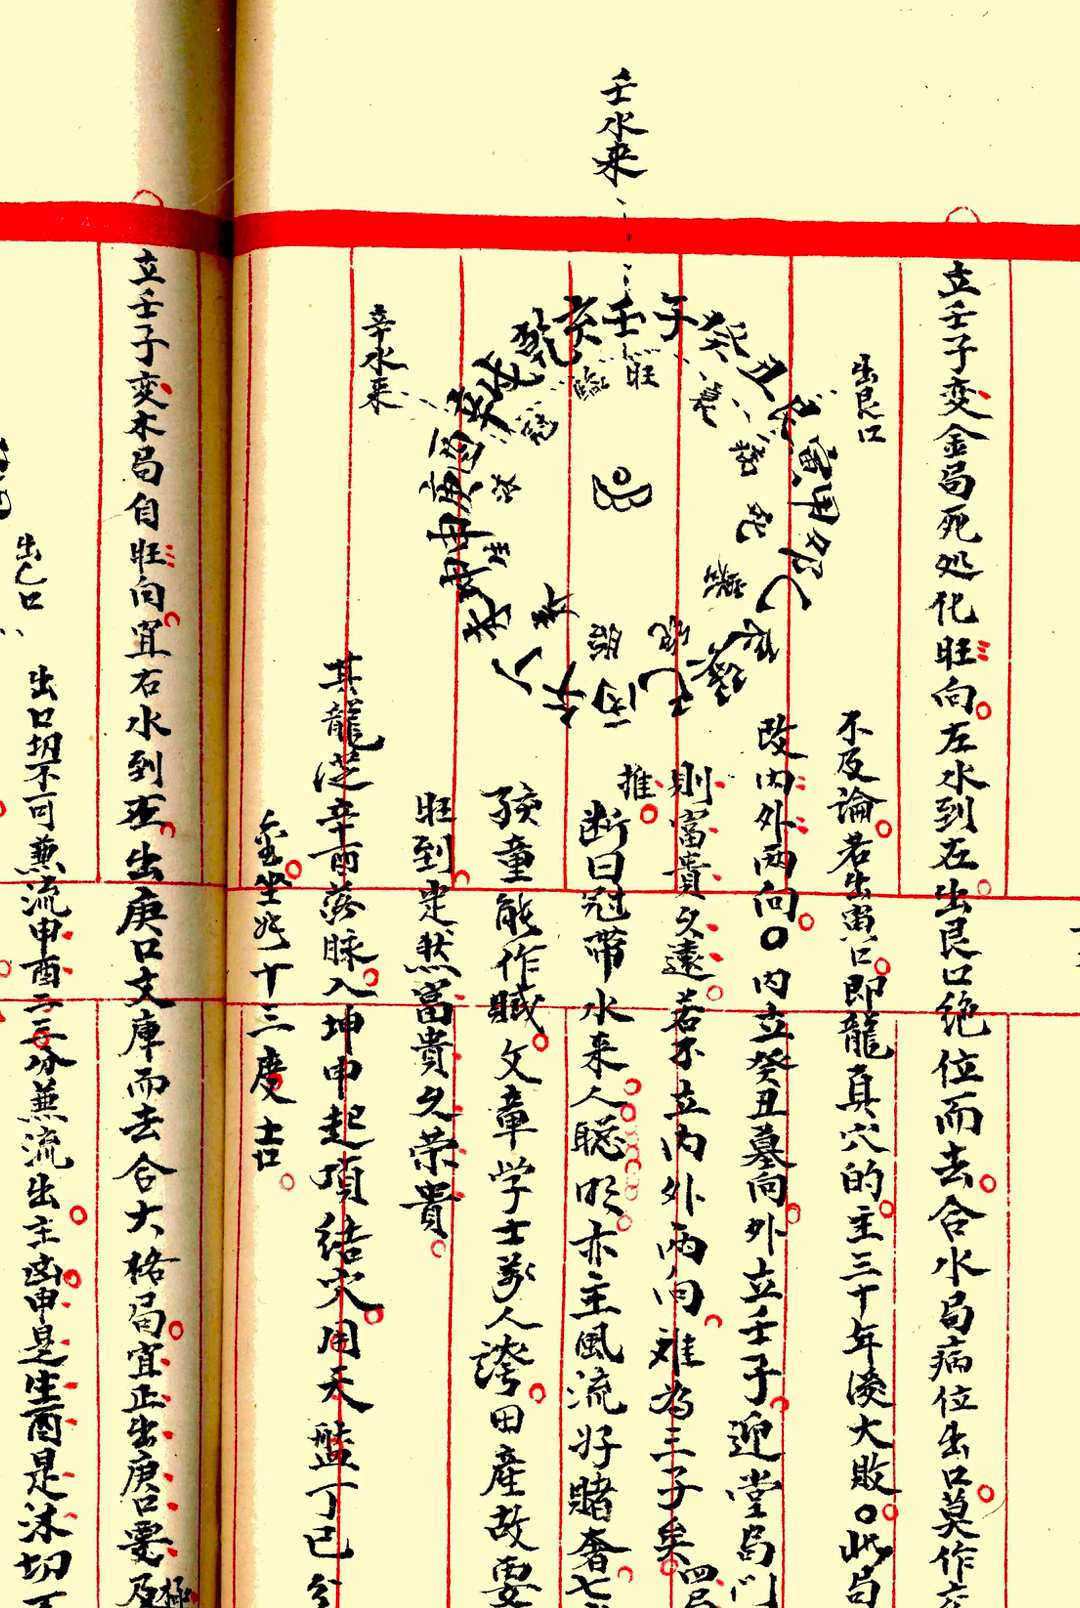 壬水来
立壬子变金局死処化旺向左水到右出艮口絶位而去合水局病位出口莫作
出艮口
不及論若出寅口即龍真穴的主三十年後大敗此局
改内外两向内立癸丑墓向外立壬子迎堂局
則富貴久遠若不立内外两向难為三子矣
推
断曰冠帶水来人聡明亦主風流好賭奢七
孩童能作賊文章学士萬人誇田產故要
旺到走然富貴久荣貴
辛水来
其龍從辛酉落脉入坤申起項结穴用天盤丁巳分
金坐 十三度吉
亥壬子癸丑艮寅甲卯乙辰巽巳丙午丁未坤申庚酉辛戌乾
旺
墓
病
死
絶
胎
立壬子变木局自旺向宜右水到左出庚口文庫而去合大格局宜正出庚口要及
極
出乙口
出口切不可兼流申酉二三分兼流出主凶申是生酉是沐切